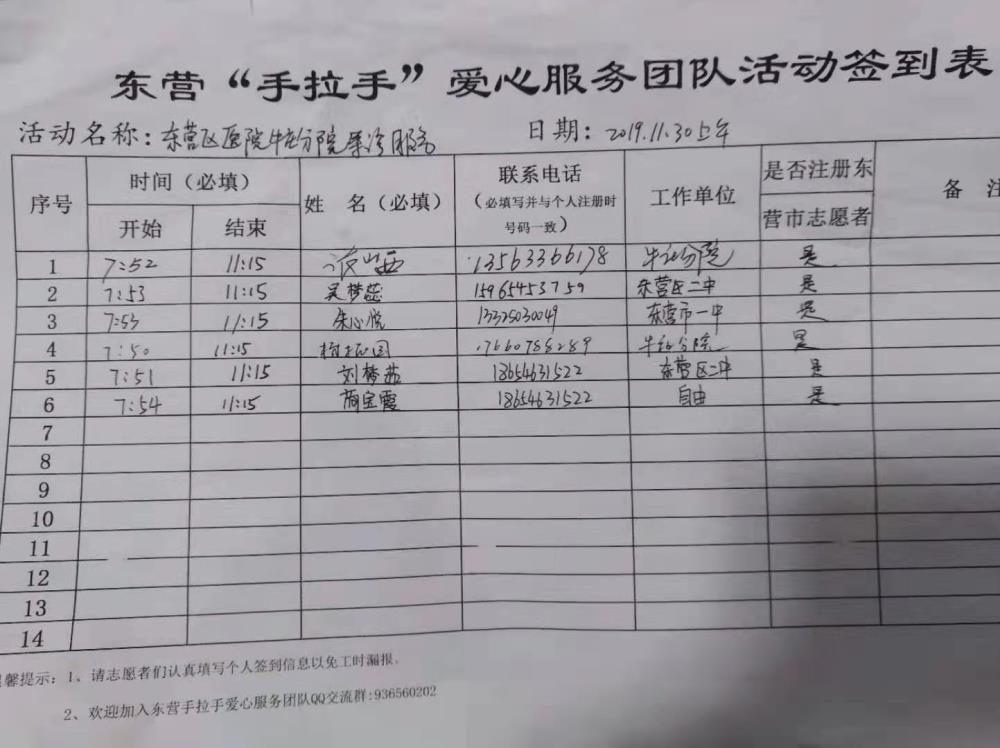 东营“手拉手”爱心服务团队活动签到表
活动名称：东营区医院牛庄分院导诊服务 日期：2019.11.30上午
序号 时间（必填） 姓 名（必填） 联系电话 工作单位 是否注册东 备 注
（必填写并与个人注册时
开始 结束 号码一致） 营市志愿者
1 7:52 11:15 13563366178 牛庄分院 是
2 7:53 11:15 吴梦蕊 15965453759 东营区二中 是
3 7:53 11:15 朱心悦 13325030049 东营市一中 是
4 7:50 11:15 7660788289 牛庄分院 是
5 7:51 11:15 刘梦茹 18654631522 东营区二中 是
6 7:54 11:15 18654631522 自由 是
7
8
9
10
11
12
13
14
馨提示：1、请志愿者们认真填写个人签到信息以免工时漏报。
2、欢迎加入东营手拉手爱心服务团队QQ交流群:936560202